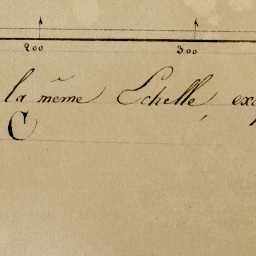 200 300
la même Echelle, 
C